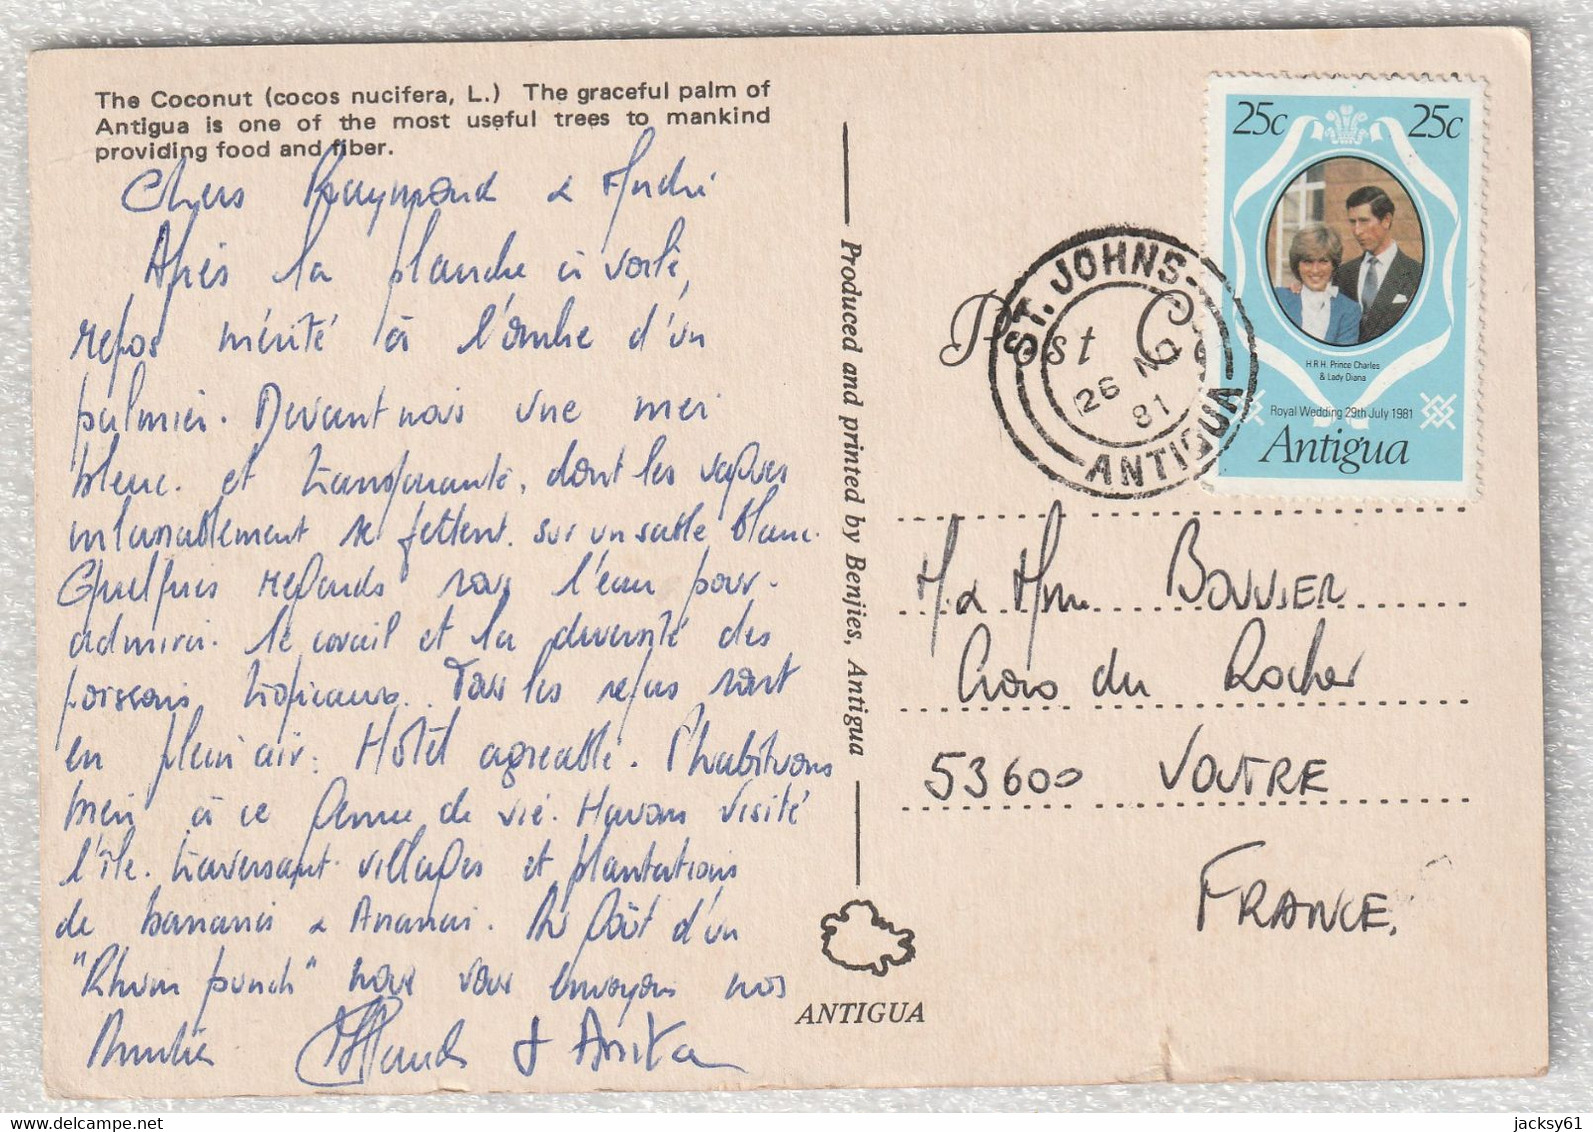 The Coconut (cocos nucifera, L.) The graceful palm of
Antigua is one of the most useful trees to mankind
providing food and fiber.
Chers Raymond & André
Après la planche à voile,
repos mérité à l'ombre d'un
palmier. Devant nous une mer
bleue et transparente, dont les vagues
inlassablement se jettent sur un sable blanc.
Quelques regards sous l'eau pour
admirer le corail et la diversité des
poissons tropicaux. Tous les repas sont
en plein air. Hôtel agréable. S'habituons
bien à ce genre de vie. Avons visité
l'île traversant villages et plantations
de bananes & Ananas. Au goût d'un
"Rhum punch" nous vous envoyons nos
Amitiés & Anita
Produced and printed by Benjies, Antigua
ANTIGUA
Post
ST. JOHNS
26 NO
81
ANTIGUA
25c 25c
H.R.H. Prince Charles
& Lady Diana
Royal Wedding 29th July 1981
Antigua
M. & Mme BOUVIER
Croix du Rocher
53600 VOUTRE
FRANCE.
jacksy61